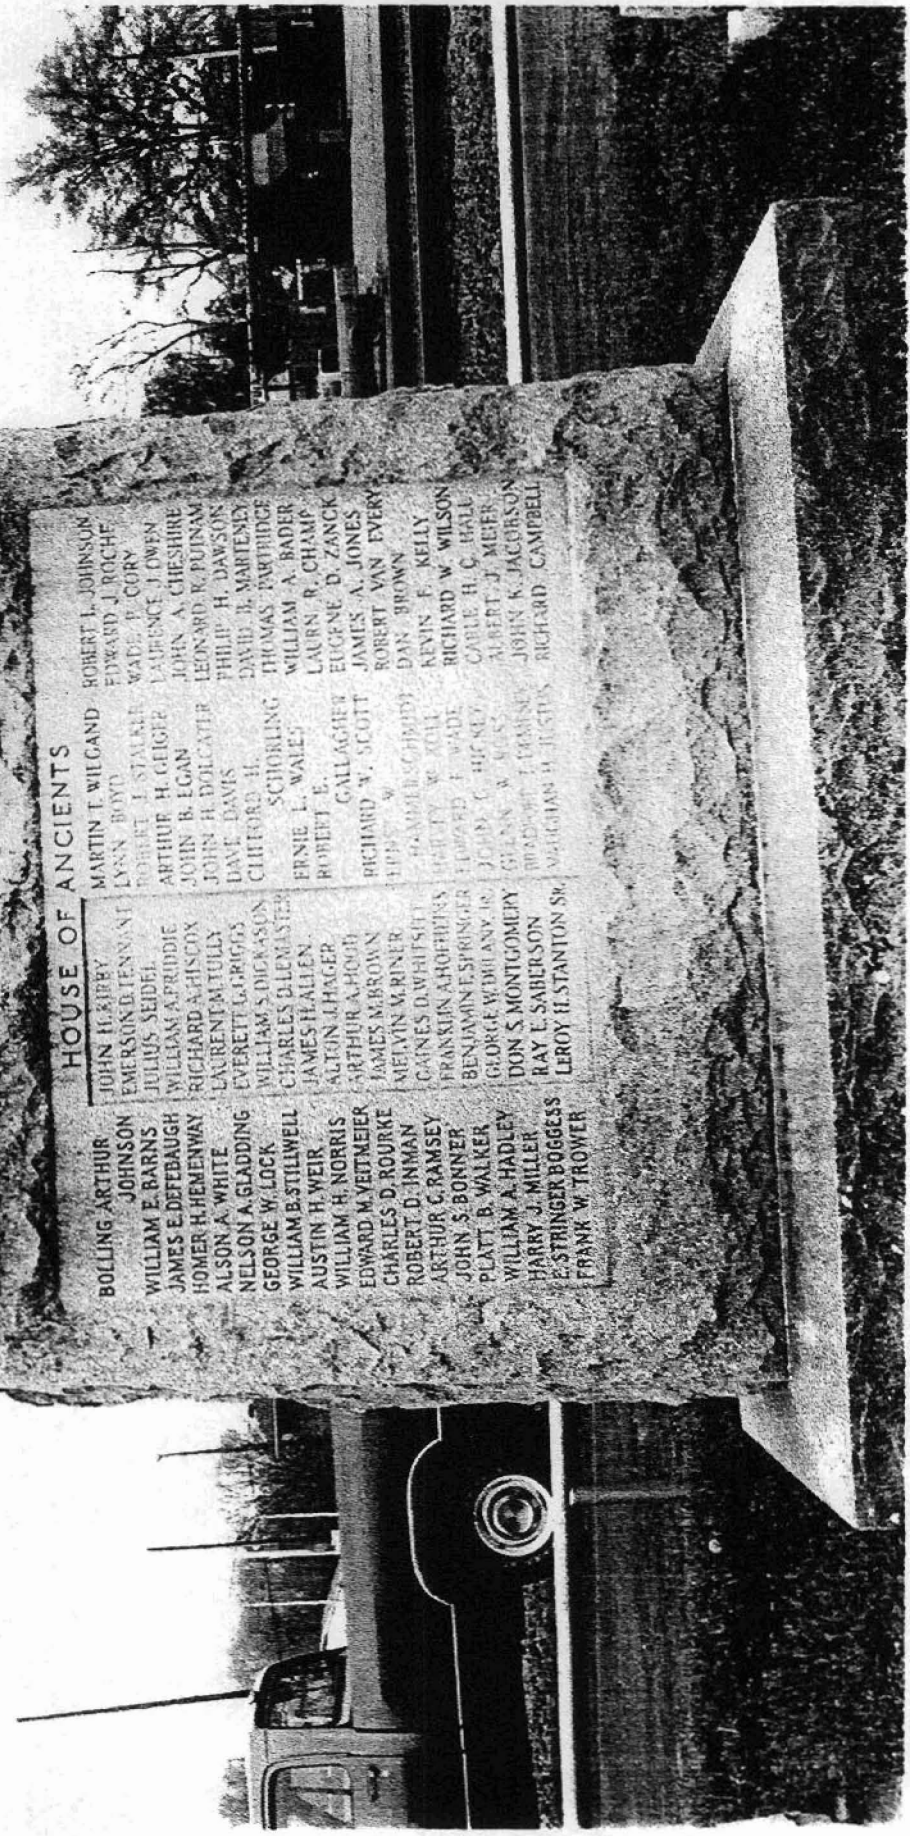 HOUSE OF ANCIENTS
BOLLING ARTHUR
JOHNSON
WILLIAM E. BARNS
JAMES E. DEFEBAUGH
HOMER H. HEMENWAY
ALSON A. WHITE
NELSON A. GLADDING
GEORGE W. LOCK
WILLIAM B. STILLWELL
AUSTIN H. WEIR
WILLIAM H. NORRIS
EDWARD M. VEITMEIER
CHARLES D. ROURKE
ROBERT D. INMAN
ARTHUR C. RAMSEY
JOHN S. BONNER
PLATT B. WALKER
WILLIAM A. HADLEY
HARRY J. MILLER
E. STRINGER BOGGESS
FRANK W. TROWER
JOHN H. KIRBY
EMERSON D. TENNANT
JULIUS SEIDEL
WILLIAM A. PRIDDIE
RICHARD A. HISCOX
LAURENT M. TULLY
EVERETT G. GRIGGS
WILLIAM S. DICKASON
CHARLES D. LEMASTER
JAMES H. ALLEN
ALTON J. HAGER
ARTHUR A. HOOD
JAMES M. BROWN
MELVIN M. RINER
GAINES D. WHITSITT
FRANKLIN A. HOFHEINS
BENJAMIN F. SPRINGER
GEORGE W. DULANY JR.
DON S. MONTGOMERY
RAY E. SABERSON
LEROY H. STANTON SR.
MARTIN T. WIEGAND
LYNN BOYD
ROBERT J. STALKER
ARTHUR H. GEIGER
JOHN B. EGAN
JOHN H. DOLCATER
DAVE DAVIS
CLIFFORD H.
SCHORLING
ERNIE L. WALES
ROBERT E.
GALLAGHER
RICHARD W. SCOTT
W.
HAMMERSCHMIDT
W. KOLL
EDWARD F. WADE
C. HICKEY
GLENN W.
BRADFORD
VAUGHAN H. JUSTUS
ROBERT L. JOHNSON
EDWARD J. ROCHE
WADE P. CORY
LAURENCE J. OWEN
JOHN A. CHESHIRE
LEONARD R. PUTNAM
PHILIP H. DAWSON
DAVID B. MARTENEY
THOMAS PARTRIDGE
WILLIAM A. BADER
LAURN R. CHAMP
EUGENE D. ZANCK
JAMES A. JONES
ROBERT VAN EVERY
DAN BROWN
KEVIN F. KELLY
RICHARD W. WILSON
CARLE H. C. HALL
ALBERT J. MEIER
JOHN K. JACOBSON
RICHARD CAMPBELL